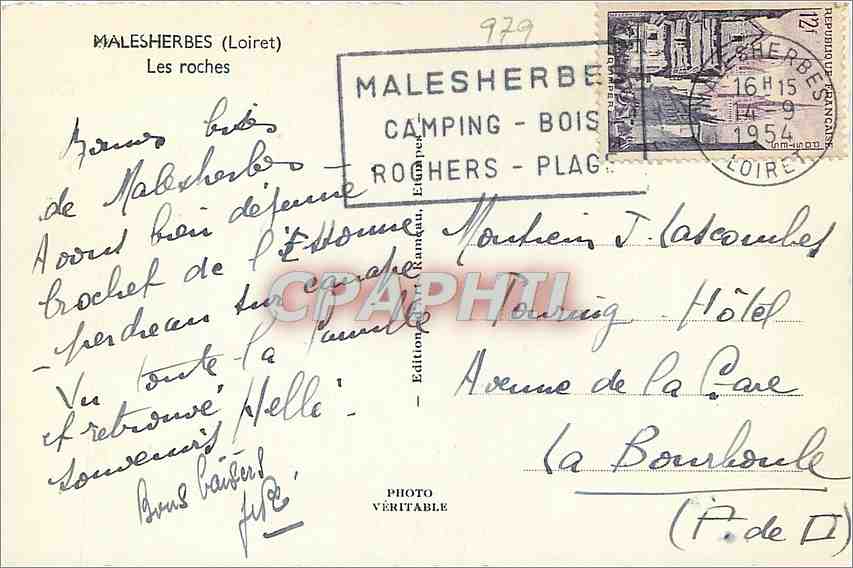 979
MALESHERBES (Loiret)
Les roches
MALESHERBE
CAMPING - BOIS
ROCHERS - PLAGE
12f
REPUBLIQUE FRANÇAISE
POSTES
QUIMPER
MALESHERBES
16H15
14-9
1954
LOIRET
Bonnes bises
de Malesherbes -
Avons bien déjeuné
brochet de l'Essonne
- perdreau sur canapé
Vu toute la famille
et retrouvé
souvenirs Hellé -
Bons baisers
Monsieur J. Lascombes
Touring - Hôtel
Avenue de la Gare
La Bourboule
(P. de D)
- Edition d'Art Rameau, Etampes -
PHOTO
VÉRITABLE
CPAPHIL